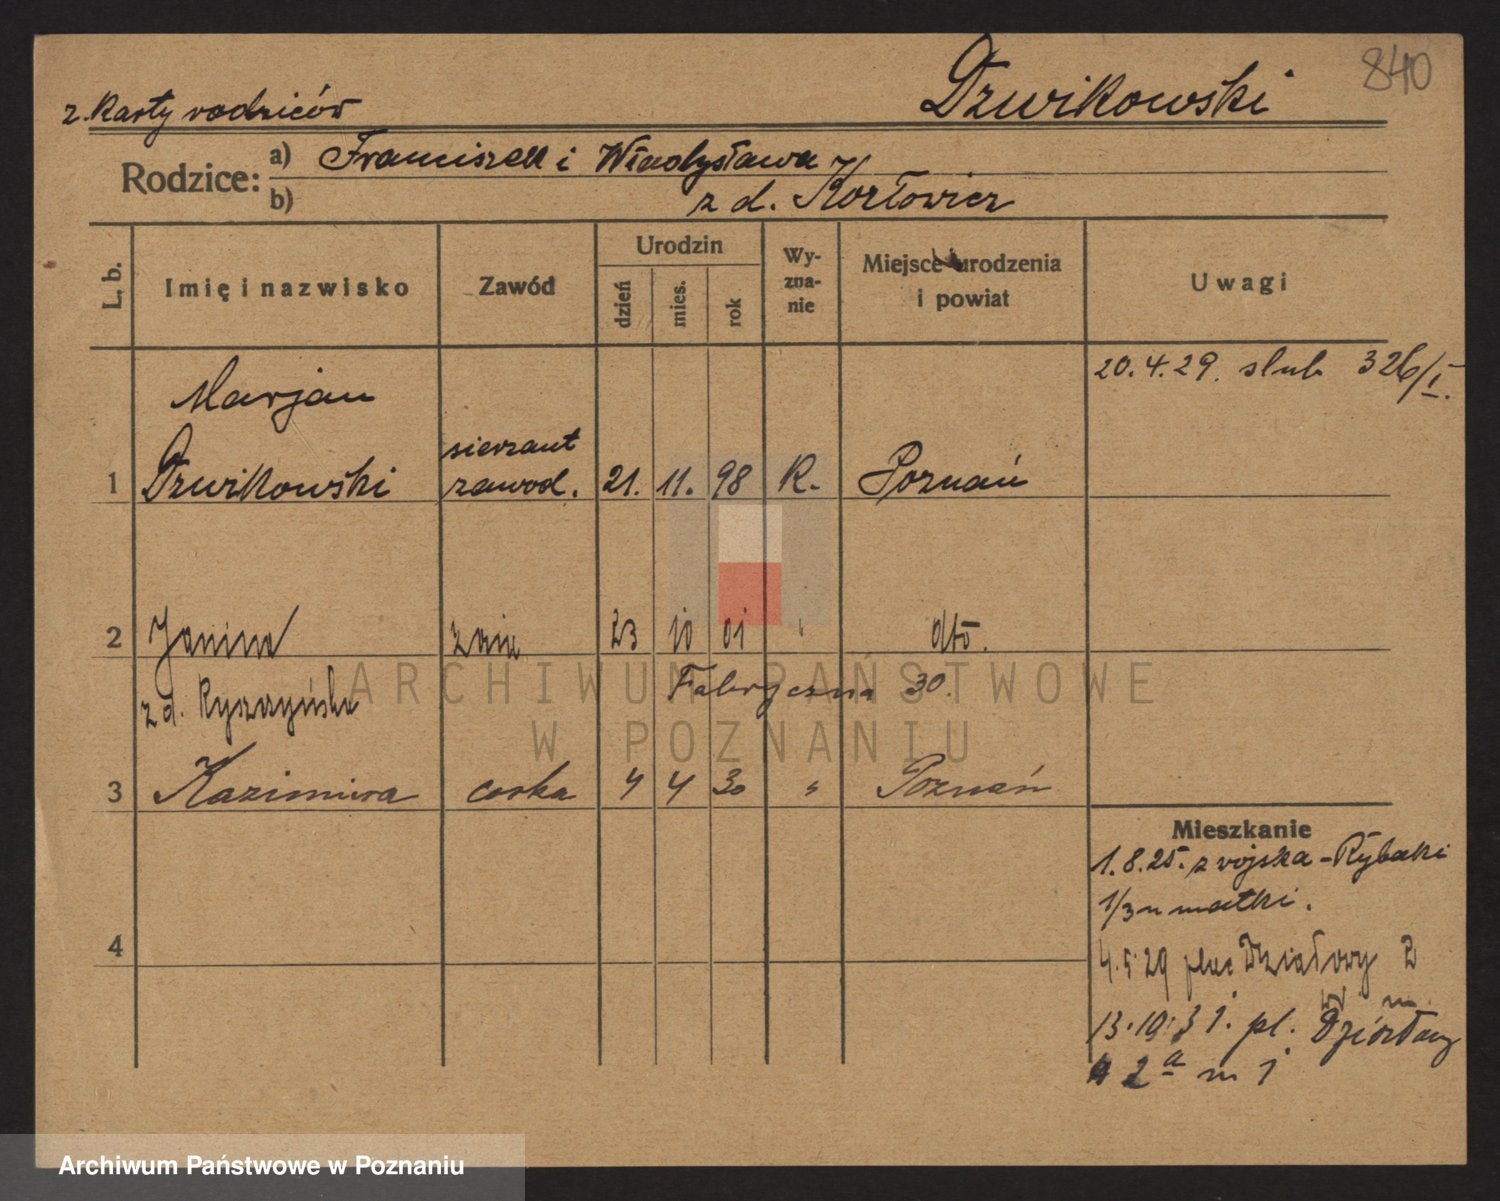 840
z. Karty rodziców
Dzwikowski
Rodzice:
a) Franciszek i Władysława
b) z d. Kozłowicz
L. b.
Imię i nazwisko
Zawód
Urodzin
dzień
mies.
rok
Wy-
zna-
nie
Miejsce urodzenia
i powiat
Uwagi
20.4.29. slub 326/I.
Marjan
sierzant
1 Dzwikowski zawod. 21. 11. 98 R. Poznań
2 Janina żona 23 10 01 " dto.
z d. Ryszzyńska Fabryczna 30.
3 Kazimira corka 4 4 30 " Poznań
Mieszkanie
1.8.25. z wojska - Rybaki
1/3 u matki.
4
4.5.29 plac Działowy 2
m.
13.10.31. pl. Działowy
2a m 1
ARCHIWUM PAŃSTWOWE
W POZNANIU
Archiwum Państwowe w Poznaniu